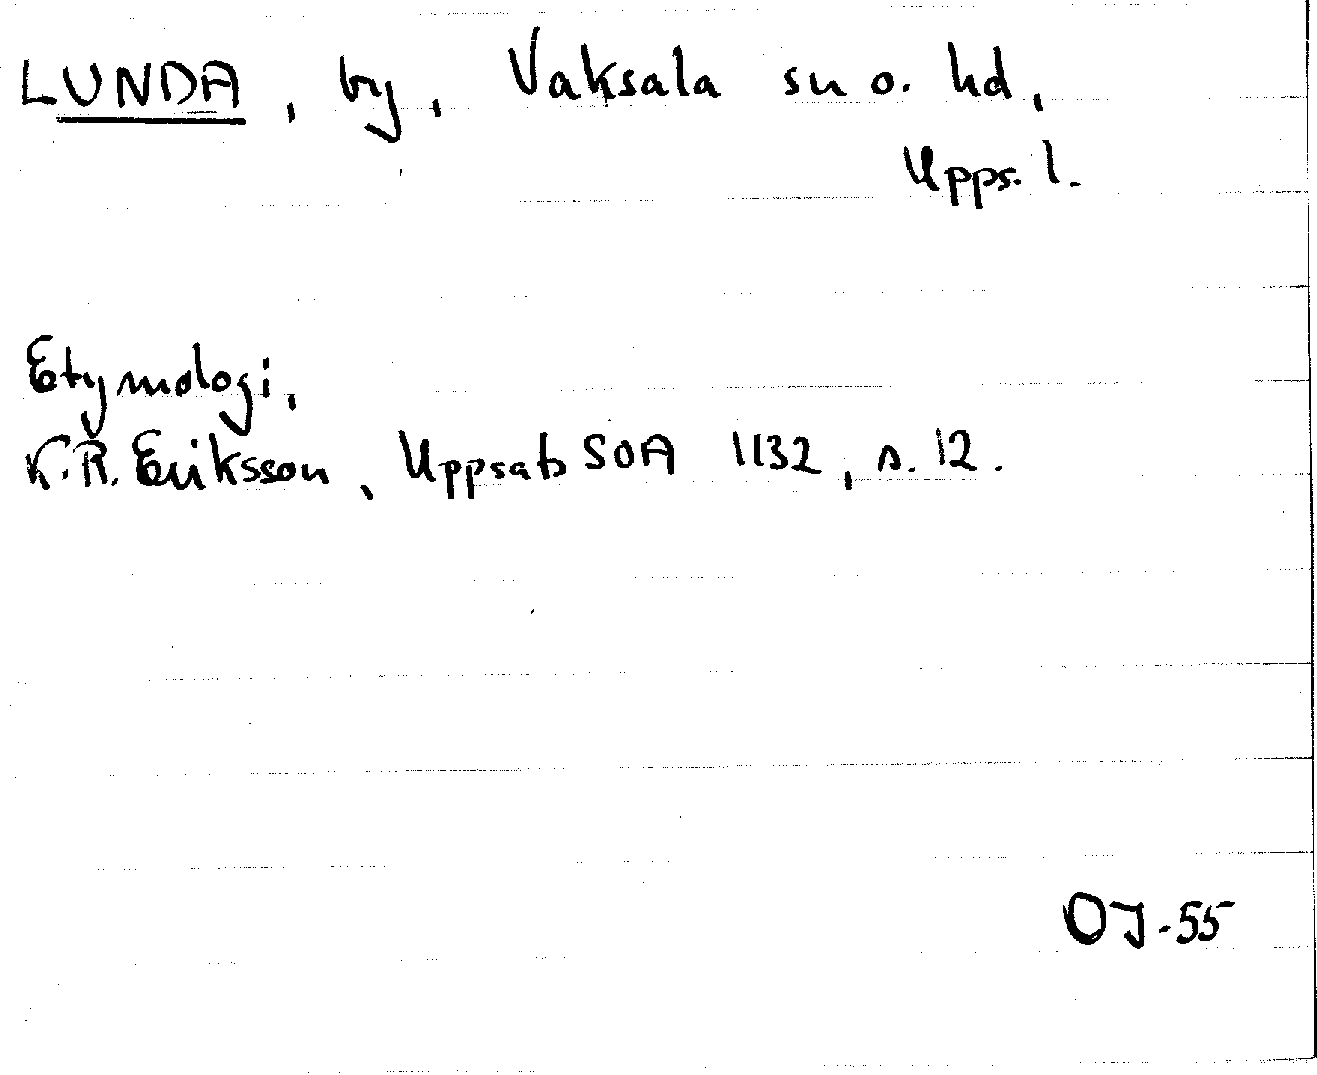 LUNDA, by, Vaksala sn o. hd,
Upps. l.
Etymologi,
K.R. Eriksson, Uppsala SOA 1132, s. 12.
OJ-55